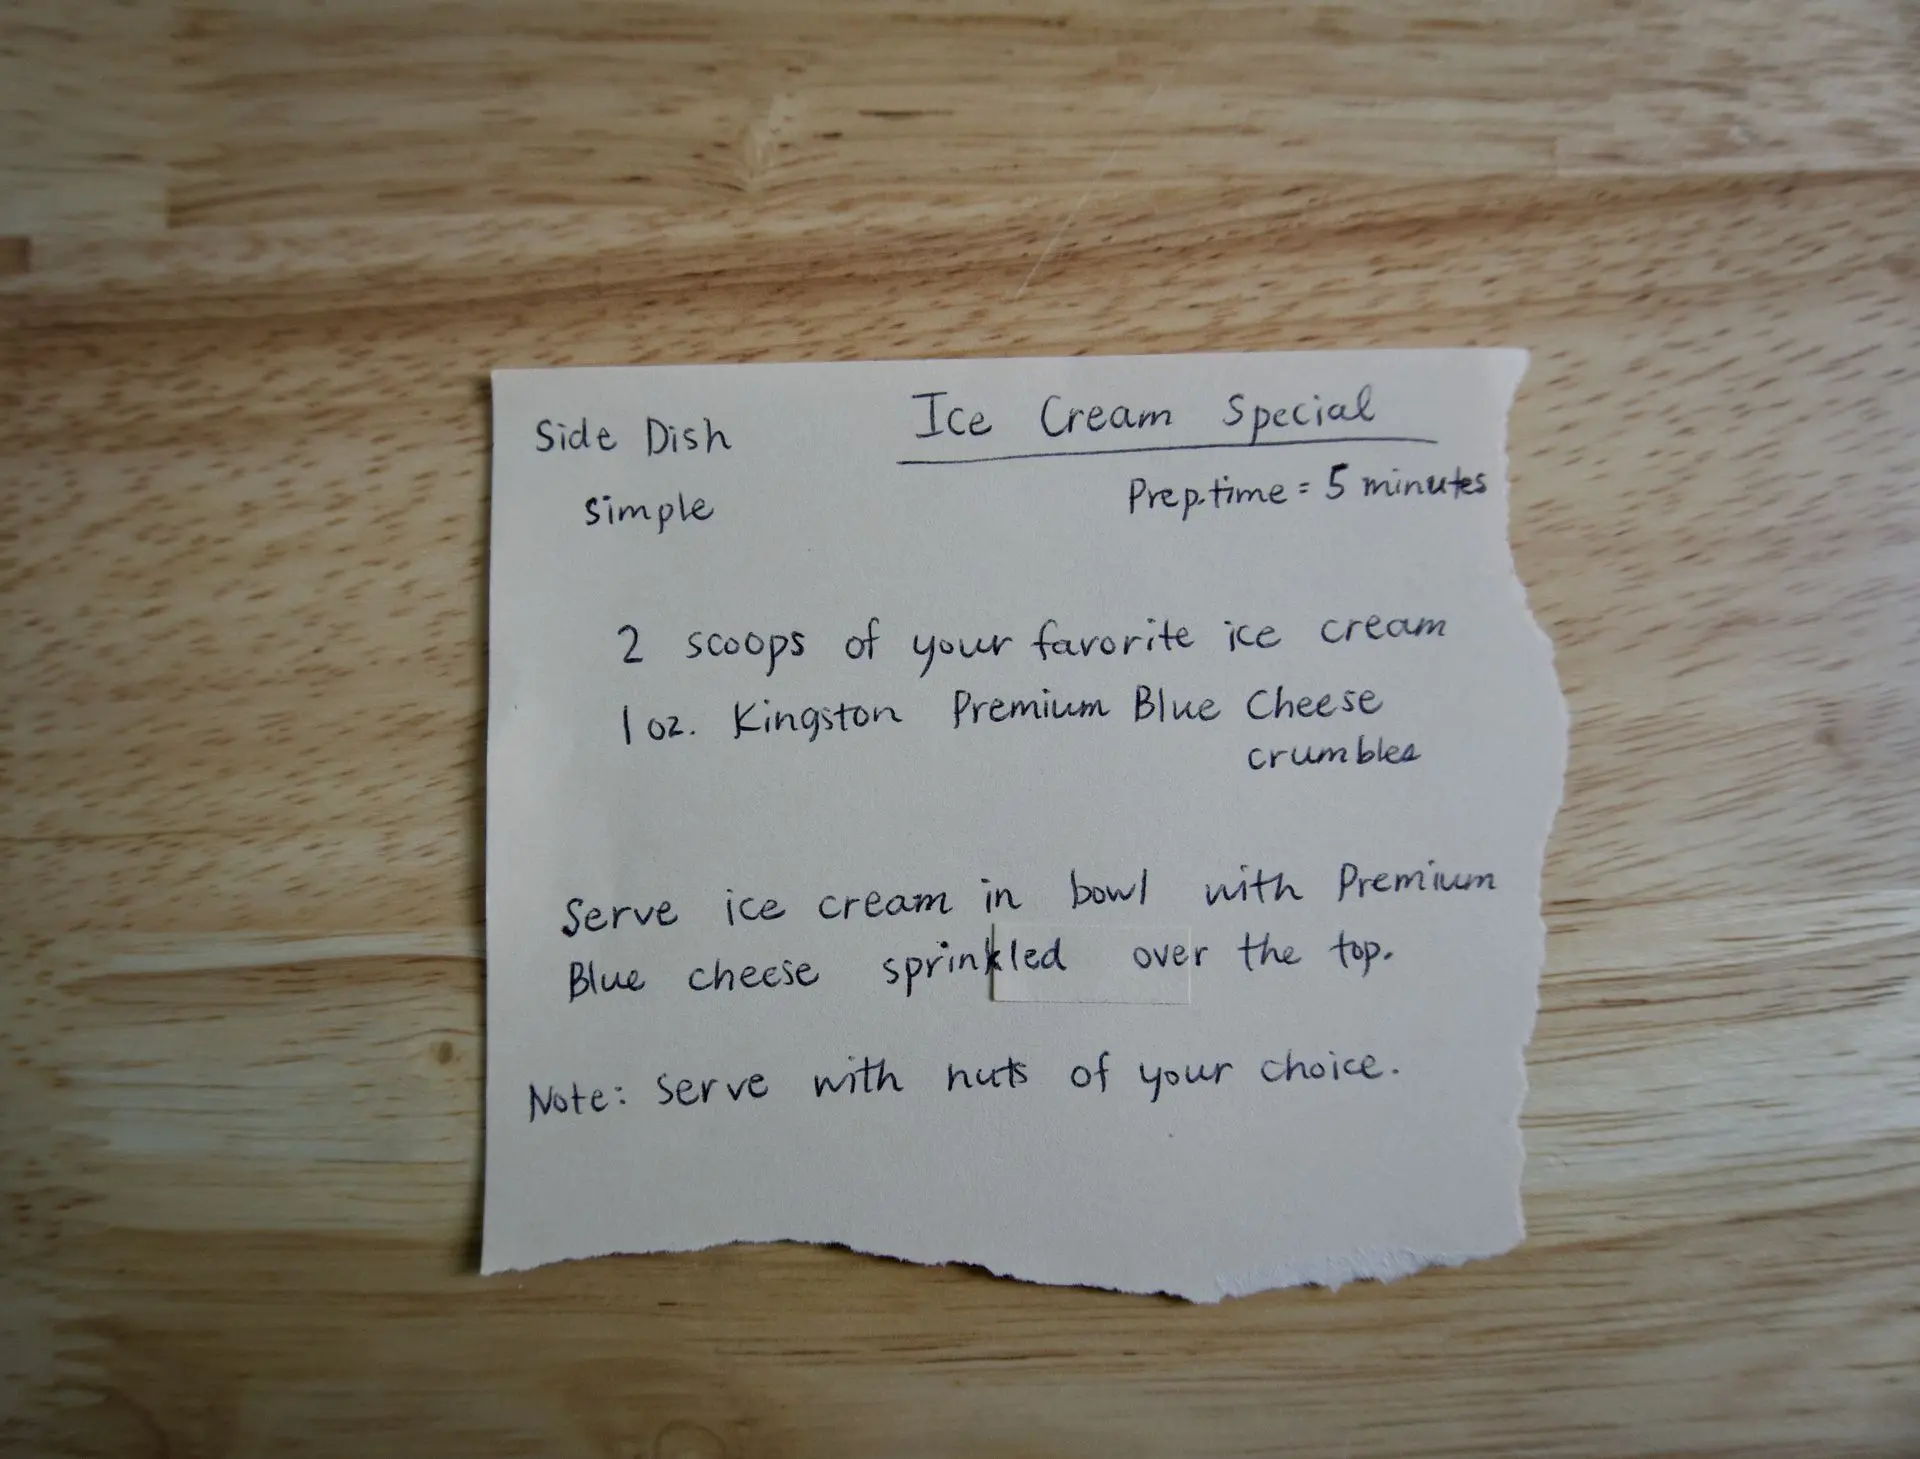 Ice Cream Special
Side Dish
simple
Prep.time = 5 minutes
2 scoops of your favorite ice cream
1 oz. Kingston Premium Blue Cheese
crumbles
Serve ice cream in bowl with Premium
Blue cheese sprinkled over the top.
Note: Serve with nuts of your choice.